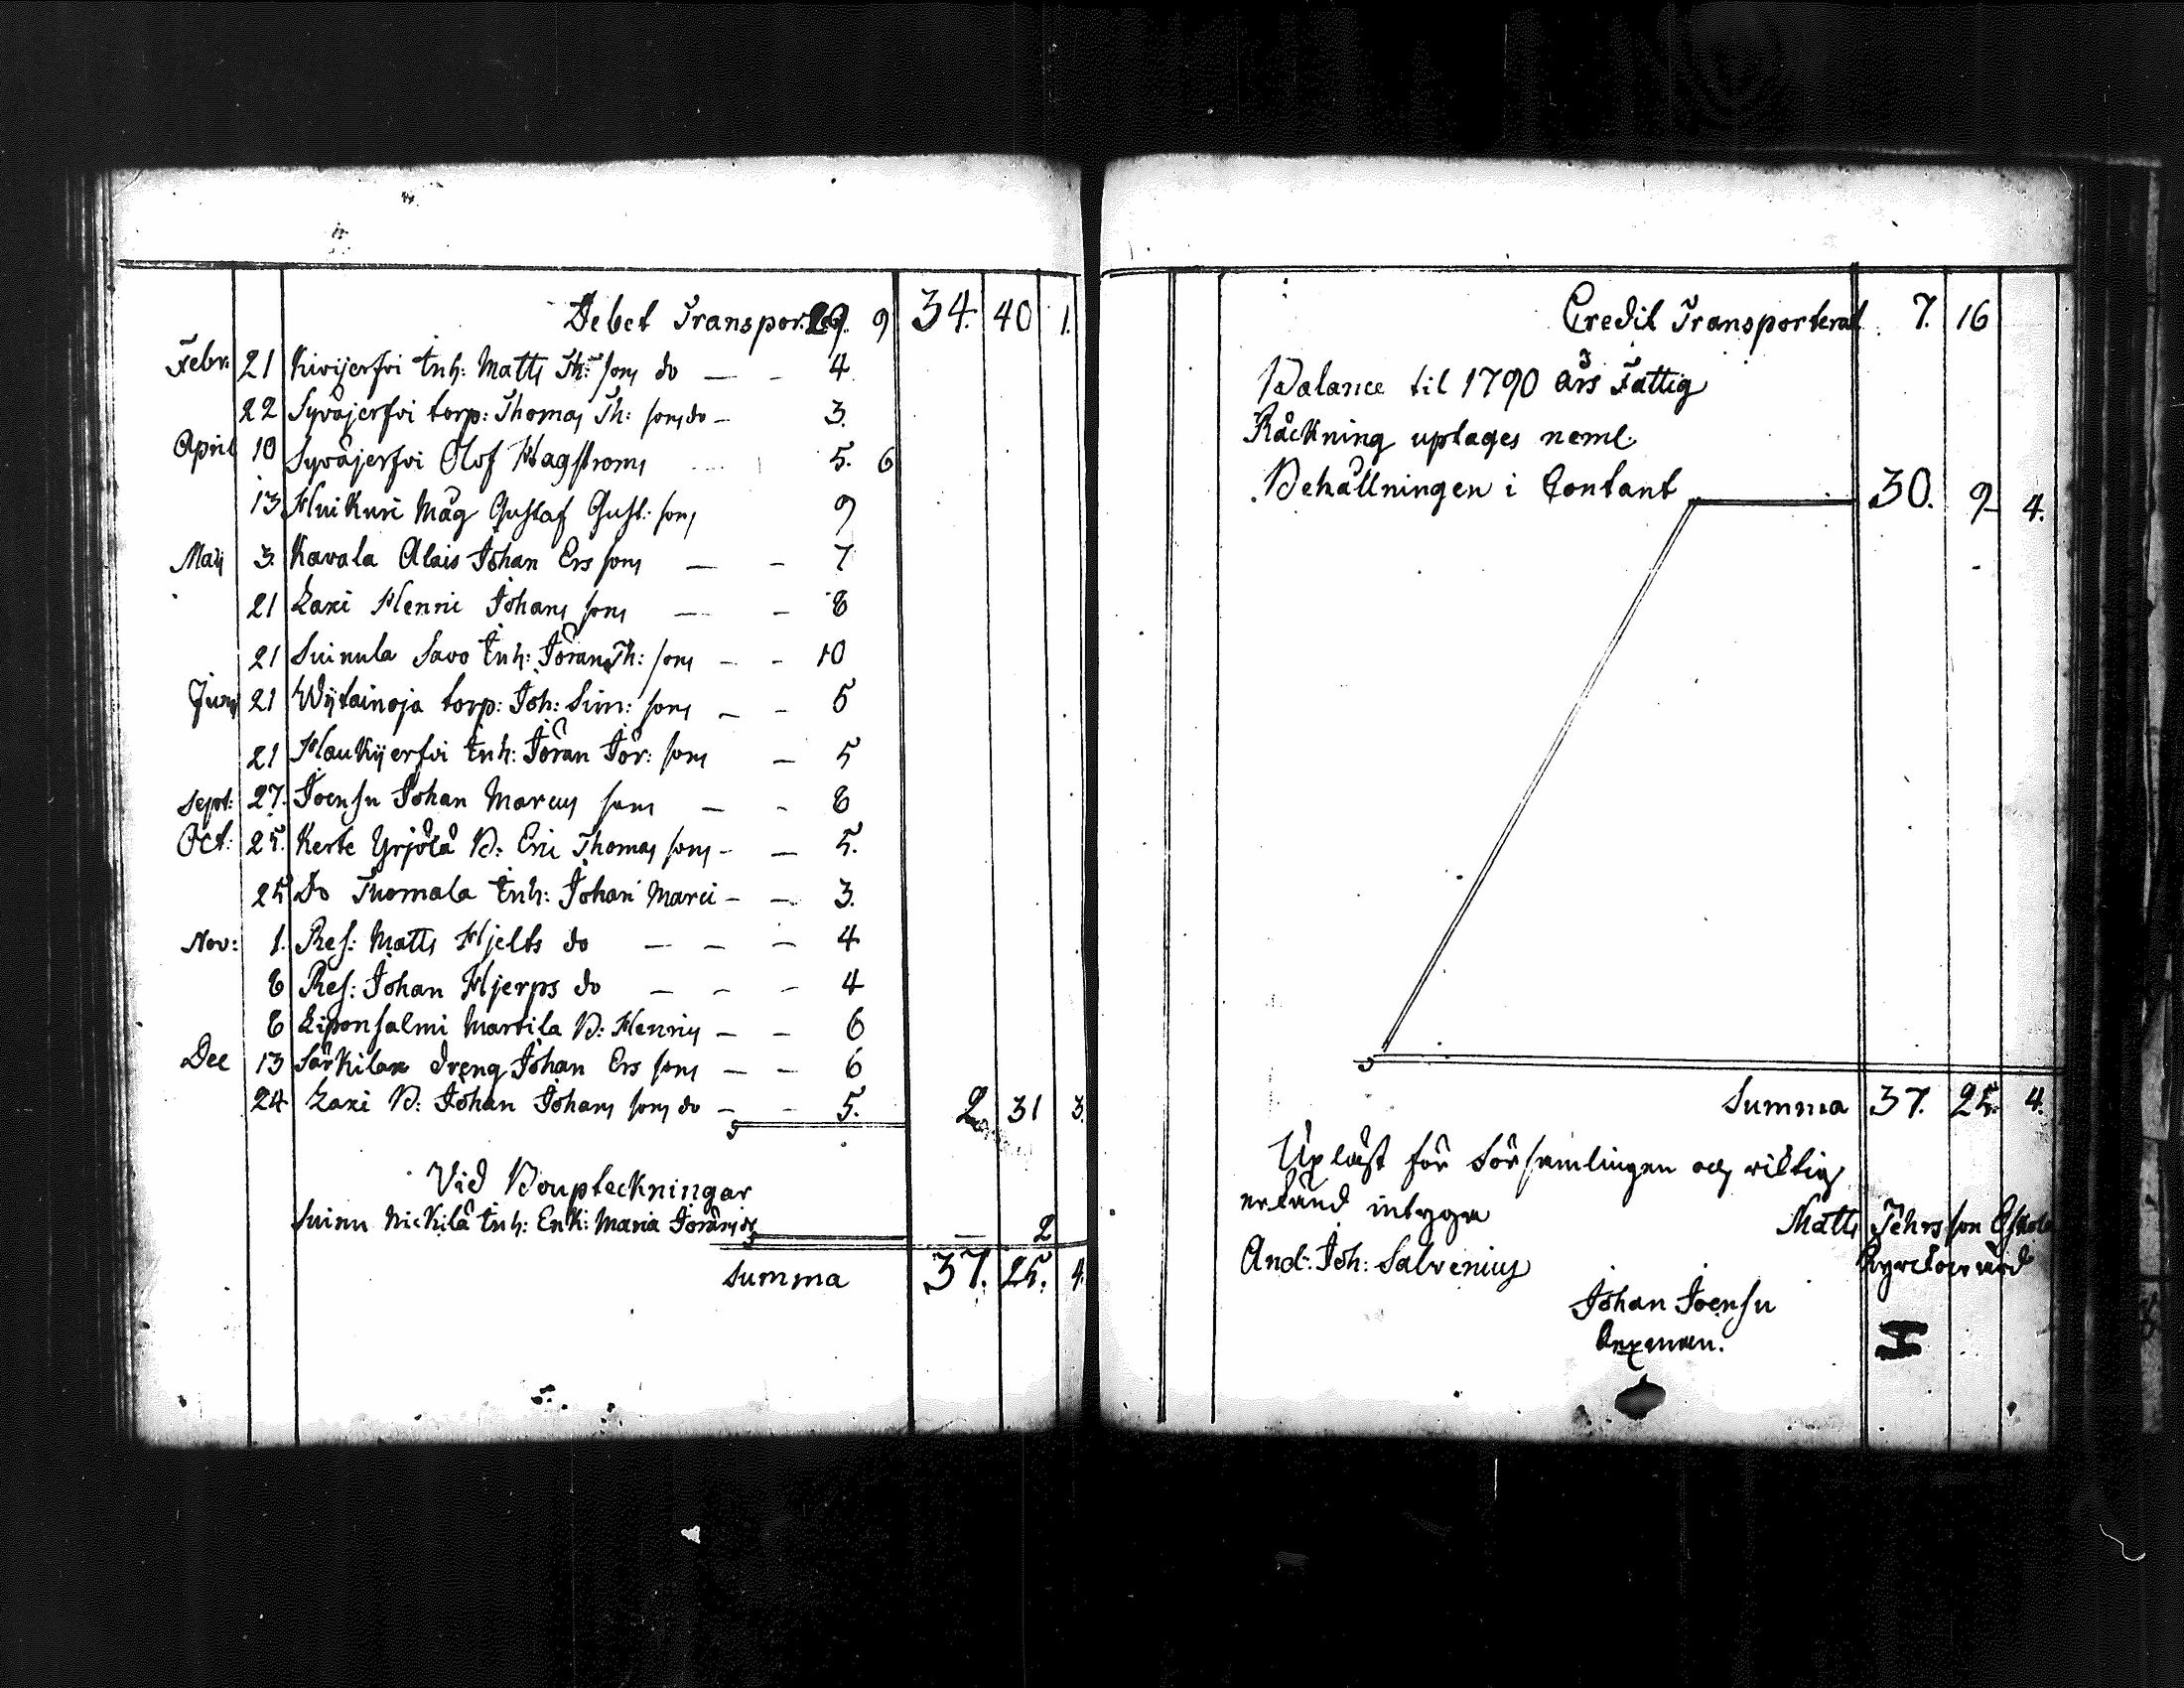 Debet Transport. 29. 9 34. 40 1.
Febr: 21 Kivijerfvi Inh: Matts Th: sons do — - 4
22 Syväjerfvi torp: Thomas Th: sons do - 3.
April 10 Syväjerfvi Olof Hagströms 5. 6
13 Huikuri Måg Gustaf Gust: sons 9
Maij 3. Kavala Alais Johan Ers sons — - 7
21 Laxi Henric Johans sons — - 8
21 Suinula Savo Inh: Jöran Th: sons - - 10
Junij 21 Wytainoja torp: Joh: Sim: sons - - 5
21 Haukijerfvi Inh: Jöran Jör: sons - 5
Sept: 27. Joensu Johan Marcus sons - - 8
Oct: 25. Kerte Yrjölä B: Eric Thomas sons - — 5.
25 do Tuomala Inh: Johan Marci - — 3.
Nov: 1. Res: Matts Hjelts do — - — 4
8 Res: Johan Hjerps do — - - 4
8 Liponsalmi Martila B: Henrics — - 6
Dec 13 Särkilax Dreng Johan Ers sons — - 6
24 Laxi B: Johan Johans sons do - - 5. 2. 31 3.
Vid Boupteckningar
Suinu Nickilä Inh: Enk: Maria Jörans dr — 2
Summa 37. 25. 4.
Credit Transporterat 7. 16
Balance til 1790 års Fattig
Räckning uptages neml.
Behållningen i Contant 30. 9 4.
Summa 37. 25. 4.
Upläst för Församlingen och riktig
erkänd intygar
And: Joh: Salvenius
Matts
Kyrckowärd
Johan Joensu
H